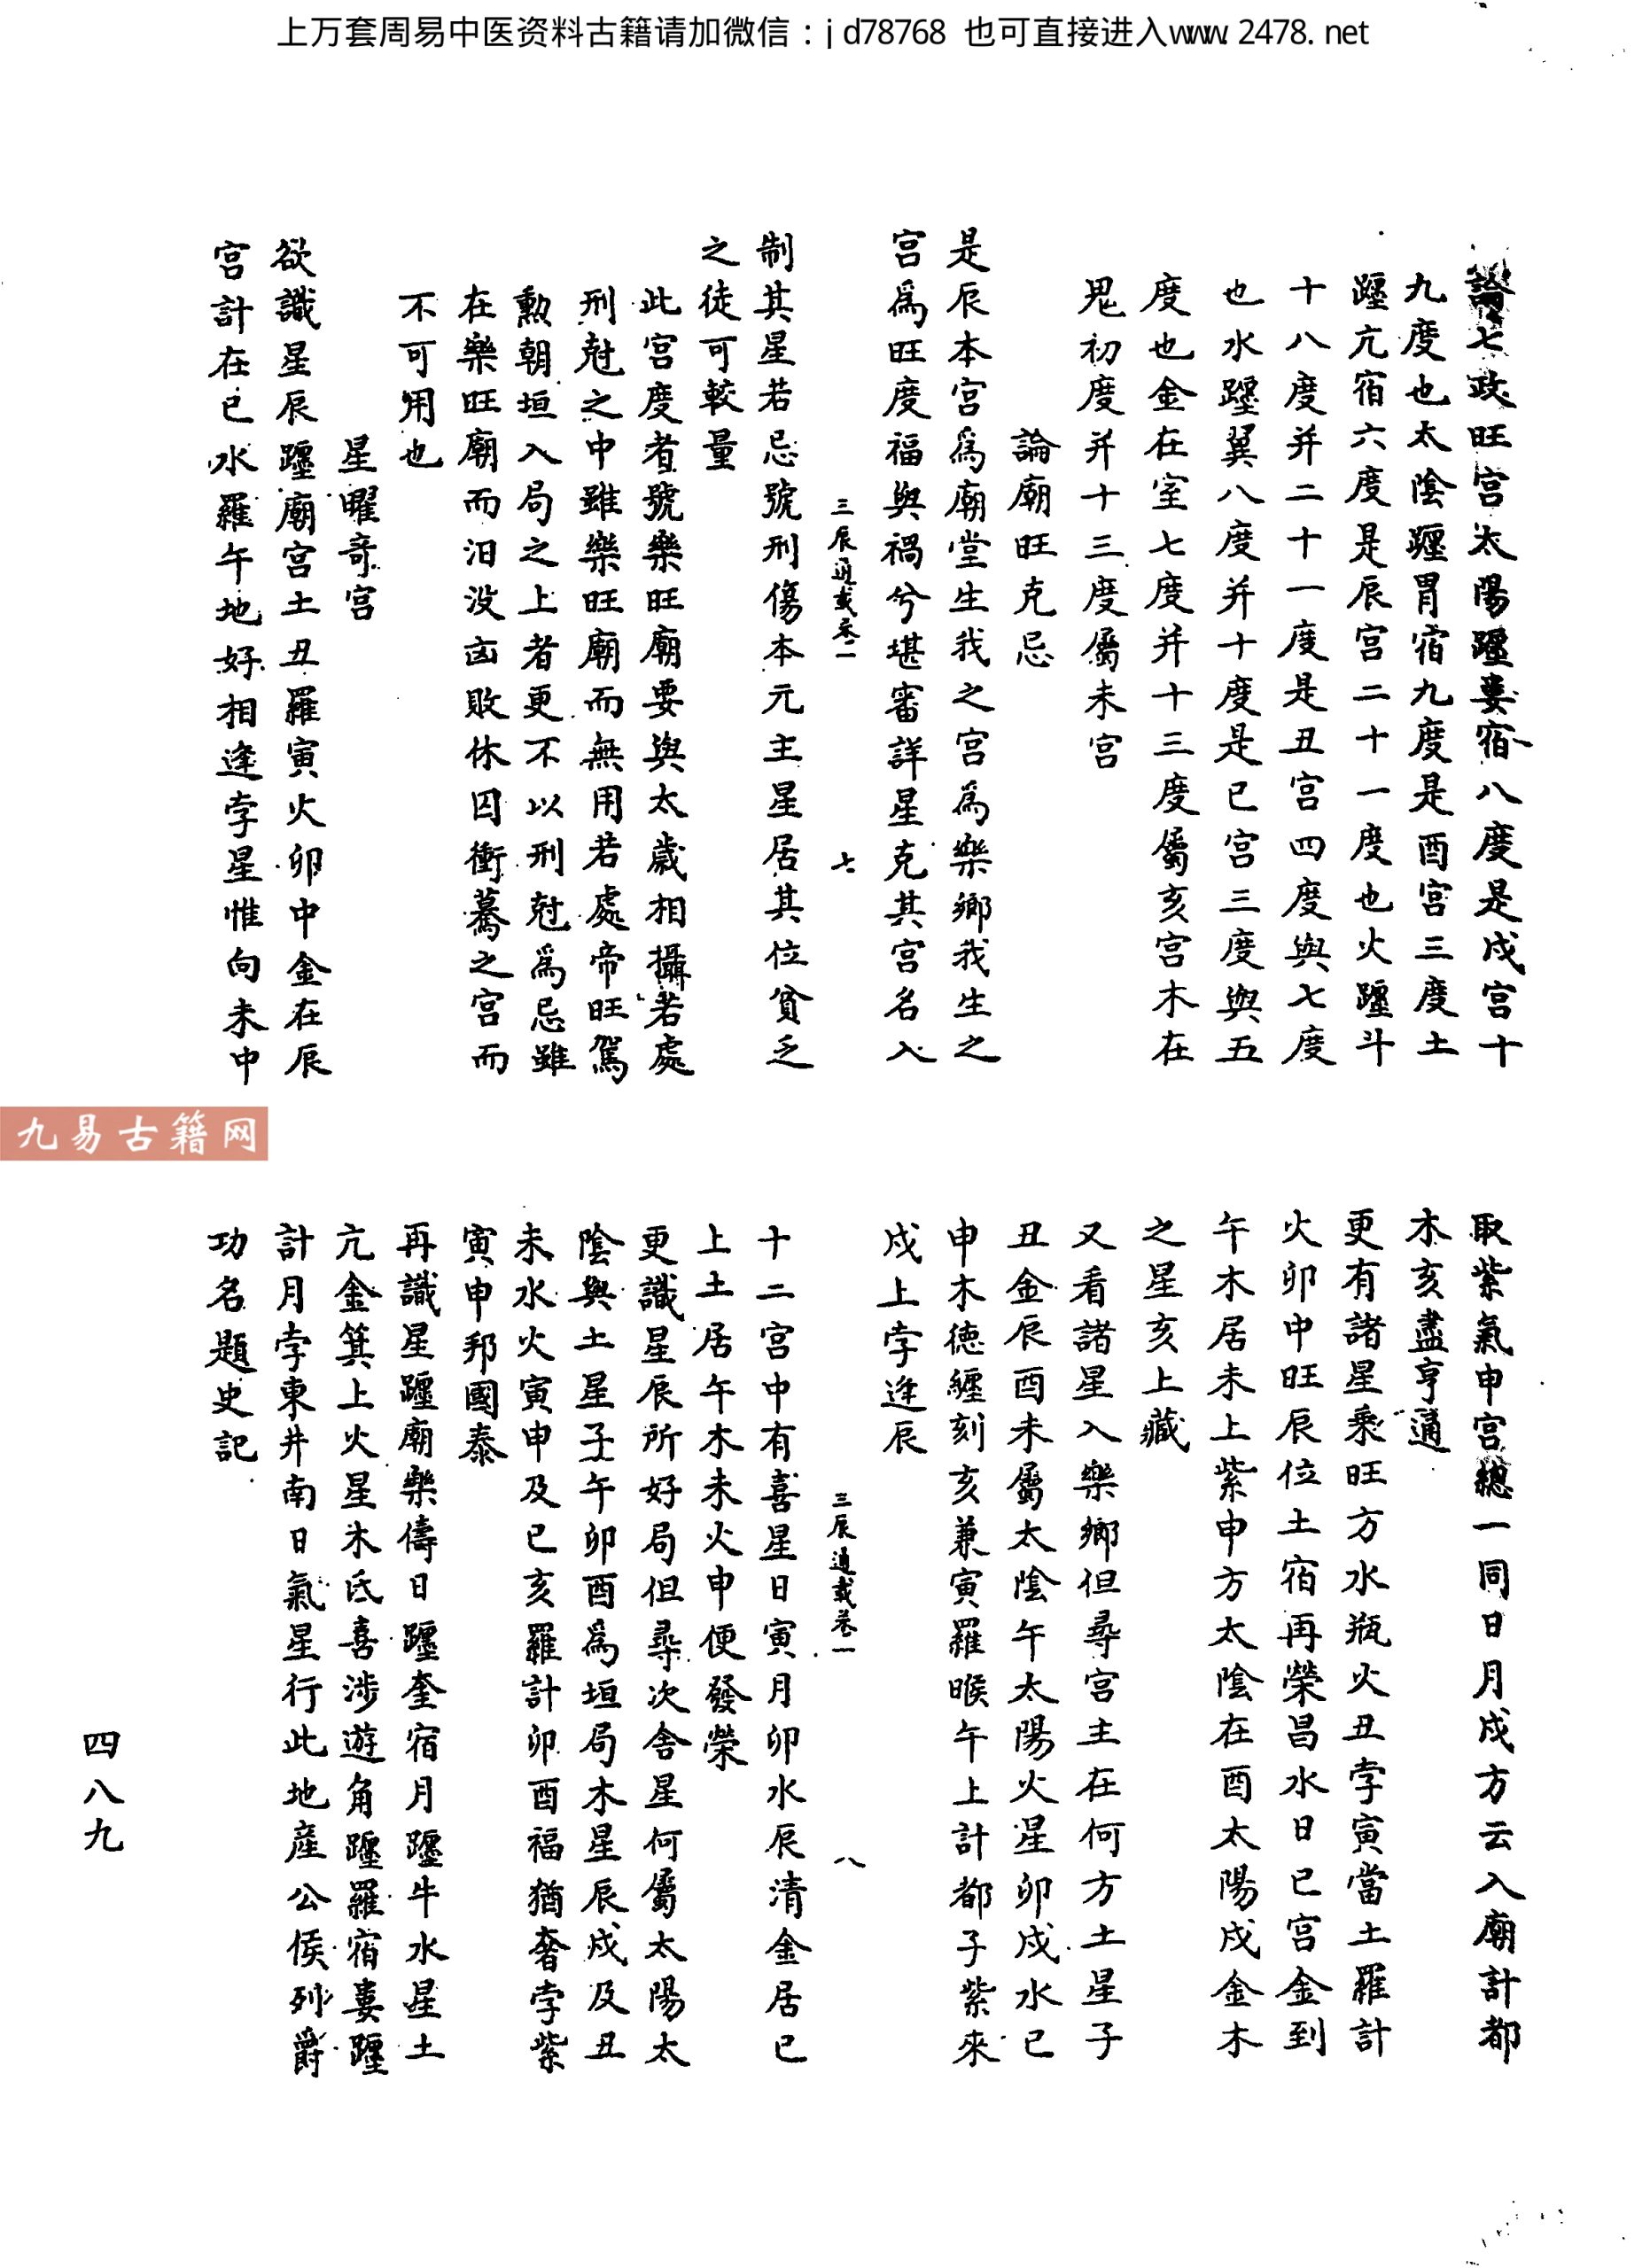 上万套周易中医资料古籍请加微信：jd78768 也可直接进入www.2478.net
論七政旺宫太陽躔婁宿八度是戌宫十
九度也太陰躔胃宿九度是酉宫三度土
躔亢宿六度是辰宫二十一度也火躔斗
十八度并二十一度是丑宫四度與七度
也水躔翼八度并十度是巳宫三度與五
度也金在室七度并十三度屬亥宫木在
鬼初度并十三度屬未宫
論廟旺克忌
是辰本宫爲廟堂生我之宫爲樂鄉我生之
宫爲旺度福與禍兮堪審詳星克其宫名入
三辰通載卷一
七
制其星若忌號刑傷本元主星居其位貧乏
之徒可較量
此宫度者號樂旺廟要與太歲相攝若處
刑尅之中雖樂旺廟而無用若處帝旺駕
勲朝垣入局之上者更不以刑尅爲忌雖
在樂旺廟而汨没凶敗休囚衝驀之宫而
不可用也
星曜奇宫
欲識星辰躔廟宫土丑羅寅火卯中金在辰
宫計在巳水羅午地好相逢孛星惟向未中
九易古籍网
取紫氣申宫總一同日月戌方云入廟計都
木亥盡亨通
更有諸星乘旺方水瓶火丑孛寅當土羅計
火卯中旺辰位土宿再榮昌水日巳宫金到
午木居未上紫申方太陰在酉太陽戌金木
之星亥上藏
又看諸星入樂鄉但尋宫主在何方土星子
丑金辰酉未屬太陰午太陽火星卯戌水巳
申木德纏刻亥兼寅羅睺午上計都子紫來
戌上孛逢辰
三辰通載卷一
八
十二宫中有喜星日寅月卯水辰清金居巳
上土居午木未火申便發榮
更識星辰所好局但尋次舍星何屬太陽太
陰與土星子午卯酉爲垣局木星辰戌及丑
未水火寅申及巳亥羅計卯酉福猶奢孛紫
寅申邦國泰
再識星躔廟樂儔日躔奎宿月躔牛水星土
亢金箕上火星木氐喜涉遊角躔羅宿婁躔
計月孛東井南日氣星行此地産公侯列爵
功名題史記
四八九